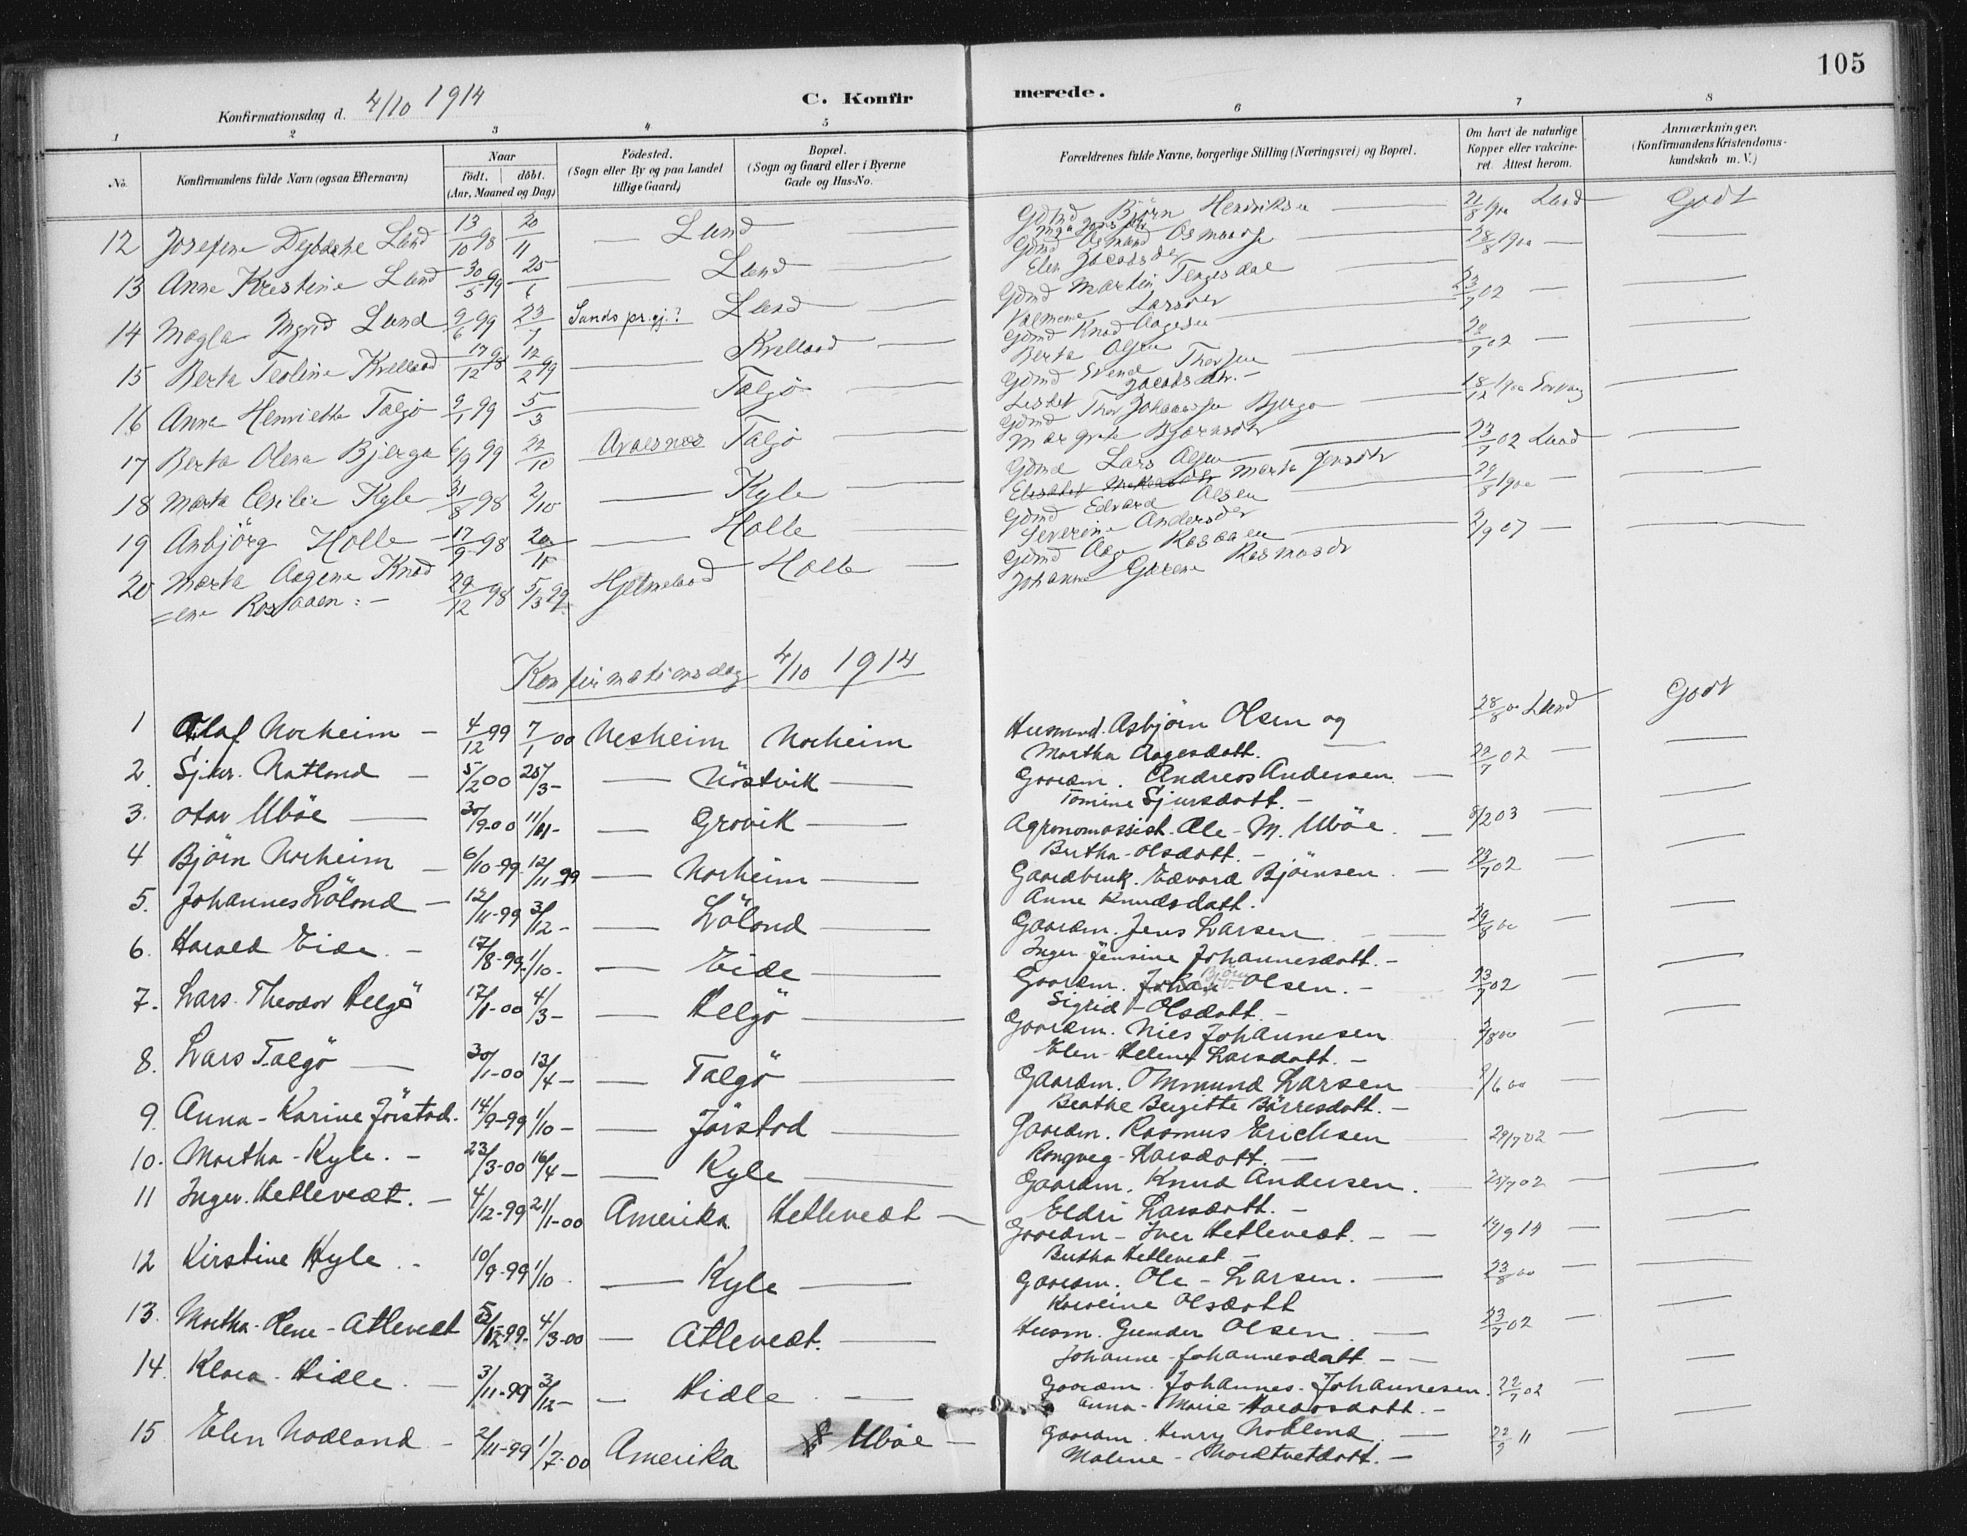 105
Konfirmationsdag d. 4/10 1914 C. Konfirmerede.
1 2 3 4 5 6 7 8
No. Konfirmandens fulde Navn (ogsaa Efternavn) Naar født. døbt. (Aar, Maaned og Dag) Fødested. (Sogn eller By og paa Landet tillige Gaard) Bopæl. (Sogn og Gaard eller i Byerne Gade og Hus-No. Forældrenes fulde Navne, borgerlige Stilling (Næringsvei) og Bopæl. Om havt de naturlige Kopper eller vakcineret. Attest herom. Anmærkninger. (Konfirmandens Kristendomskundskab m. V.)
12 Josefine Lund 13/10 98 20/11 — Lund — Gdmd Bjørn Henriksen — 21/8 1900 Lund Godt
13 Anne Kristine Lund 30/5 99 25/6 — Lund — Gdmd Osmund — 28/8 1900 —
Elen Jacobsdtr
14 Magla Ingrid Lund 9/6 99 23/7 Sunds pr.gj.? Lund — Gdmd Martin Tengesdal — 23/7 02 —
Larsdtr
15 Berta Teoline Kvelland 17/12 98 12/2 99 — Kvelland — Gdmd Knud Aagesen — 7 02 —
Berta Olsen
16 Anne Henriette Talgø 9/1 99 5/3 — Talgø — Gdmd Svend Thorsen — 18/12 1900
Jacobsdtr. —
17 Berta Olena Bjerga 6/9 99 22/10 Avaldsnes Talgø — Gdmd Thor Johannesen Bjerga — 23/7 02 Lund —
Margrete Bjørnsdtr
18 Marta Cecilie Kyle 31/8 98 2/10 — Kyle — Gdmd Lars Olsen — 29/8 1900 —
Marta Jensdtr
19 Anbjørg Holle 17/9 98 20/11 — Holle — Gdmd Edvard Olsen — 2/9 07 —
Severine Andersdtr
20 Marta Aagene Knud 29/12 98 5/3 99 Hjelmeland Holle — Gdmd Aage Rosaaen —
=ene Rosaaen: — Johanne Gurene Rasmusdtr
Konfirmationsdag 4/10 1914
1 Olaf Norheim — 4/12 99 7/1 00 Nesheim Norheim Husmand. Asbjørn Olsen og 28/8 00 Lund Godt
Martha Aagesdatt.
2 Sjur. Natland — 5/2 00 25/3 — — Nöstvik — Gaardm. Andreas Andersen. — 22/7 02 —
Tomine Sjursdatt. —
3. Otar Ubøe — 30/9-00 11/11- — Grovik — Agronomassist. Ole-M. Ubøe. — 8/2 03 —
Bertha-Olsdatt. —
4 Bjørn Norheim — 6/10-99 12/11-99 — Norheim — Gaardbruk. Edvard Bjørnsen. — 23/7 02 —
Anne Knudsdatt.
5. Johannes Løland — 12/11-99 3/12- — Løland — Gaardm. Jens Larsen. — 29/8 00 —
Inger-Jensine Johannesdatt. —
6. Harald Eide. — 17/8-99. 1/10- — Eide — Gaardm. Johan Bjørn Olsen. — 23/7 02 —
Sigrid-Olsdatt. —
7. Lars-Theodor Helgø 17/1-00 4/3- — Helgø — Gaardm. Nies Johannesen 3/8 00 —
Elen-Helene Larsdatt. —
8. Lars Talgø — 30/1-00 13/4- — Talgø — Gaardm. Ommund Larsen — /6 00 —
Beathe Bergitte Børresdatt. —
9. Anna-Karine Jørstad. 14/9-99 1/10- — Jørstad — Gaardm. Rasmus Erichsen — 29/7 02 —
Rangveg-Larsdatt. —
10. Martha-Kyle. — 23/3-00 16/4- — Kyle — Gaardm. Knud Andersen. — 23/7 02 —
Eldri Larsdatt. —
11 Inger. Hetlevedt. — 4/12-99 21/1-00 Amerika Hetlevedt — Gaardm — Iver Hetlevedt. — — 19/9 14 —
Bertha Hetlevedt —
12 Kirstine Kyle.. — 10/9-99 1/10 — Kyle — Gaardm. Ole-Larsen. — 23/8 00 —
Karoline Olsdatt
13. Martha-Lene-Atlevedt 5/12-99. 4/3-00 — Atlevedt. — Husm. Gunder Olsen. — 23/7 02 —
Johanne-Johannesdatt — —
14. Klara-Hidle. — 3/11-99 3/12- — Hidle — Gaardm. Johannes-Johannesen. 22/7 02 —
Anna-Marie-Haldorsdatt. —
15 Elen Nodland — 2/11-99 1/7-00 Amerika Ubøe — Gaardm. Henry Nodland. — 22/9 11 —
Malene-Mardtvetdatt. —